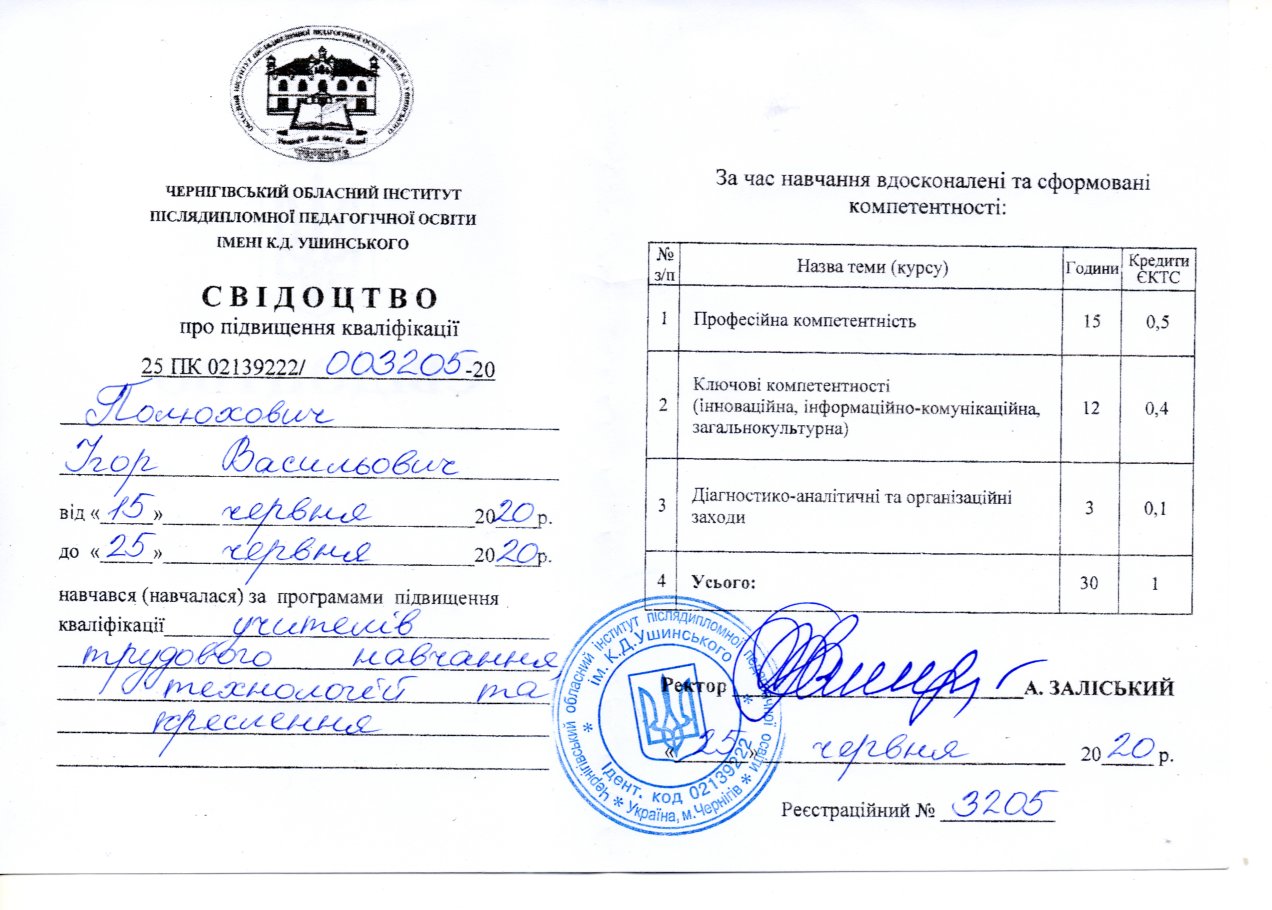 ОБЛАСНИЙ ІНСТИТУТ ПІСЛЯДИПЛОМНОЇ ПЕДАГОГІЧНОЇ ОСВІТИ ІМЕНІ К.Д. УШИНСЬКОГО
ЧЕРНІГІВСЬКИЙ ОБЛАСНИЙ ІНСТИТУТ
ПІСЛЯДИПЛОМНОЇ ПЕДАГОГІЧНОЇ ОСВІТИ
ІМЕНІ К.Д. УШИНСЬКОГО
СВІДОЦТВО
про підвищення кваліфікації
25 ПК 02139222/ 003205-20
Полюхович
Ігор Васильович
від «15» червня 2020 р.
до «25» червня 2020 р.
навчався (навчалася) за програмами підвищення
кваліфікації учителів
трудового навчання,
технологій та
креслення
За час навчання вдосконалені та сформовані
компетентності:
№ з/п Назва теми (курсу) Години Кредити ЄКТС
1 Професійна компетентність 15 0,5
2 Ключові компетентності
(інноваційна, інформаційно-комунікаційна,
загальнокультурна) 12 0,4
3 Діагностико-аналітичні та організаційні
заходи 3 0,1
4 Усього: 30 1
Ректор А. ЗАЛІСЬКИЙ
«25» червня 2020 р.
Реєстраційний № 3205
Чернігівський обласний інститут післядипломної педагогічної освіти
ім. К.Д.Ушинського
Ідент. код 02139222
* Україна, м.Чернігів *